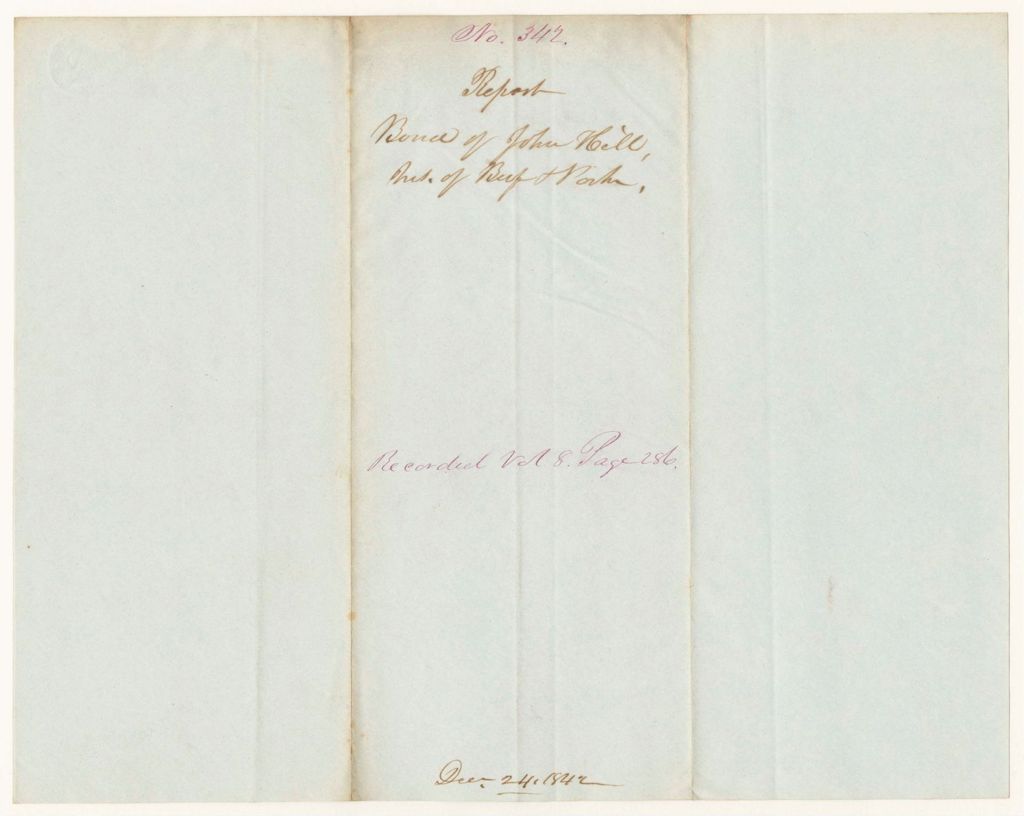 No. 342.
Report
Bond of John Hill,
Ins. of Beef & Pork,
Recorded Vol 8. Page 286.
Decr 24, 1842